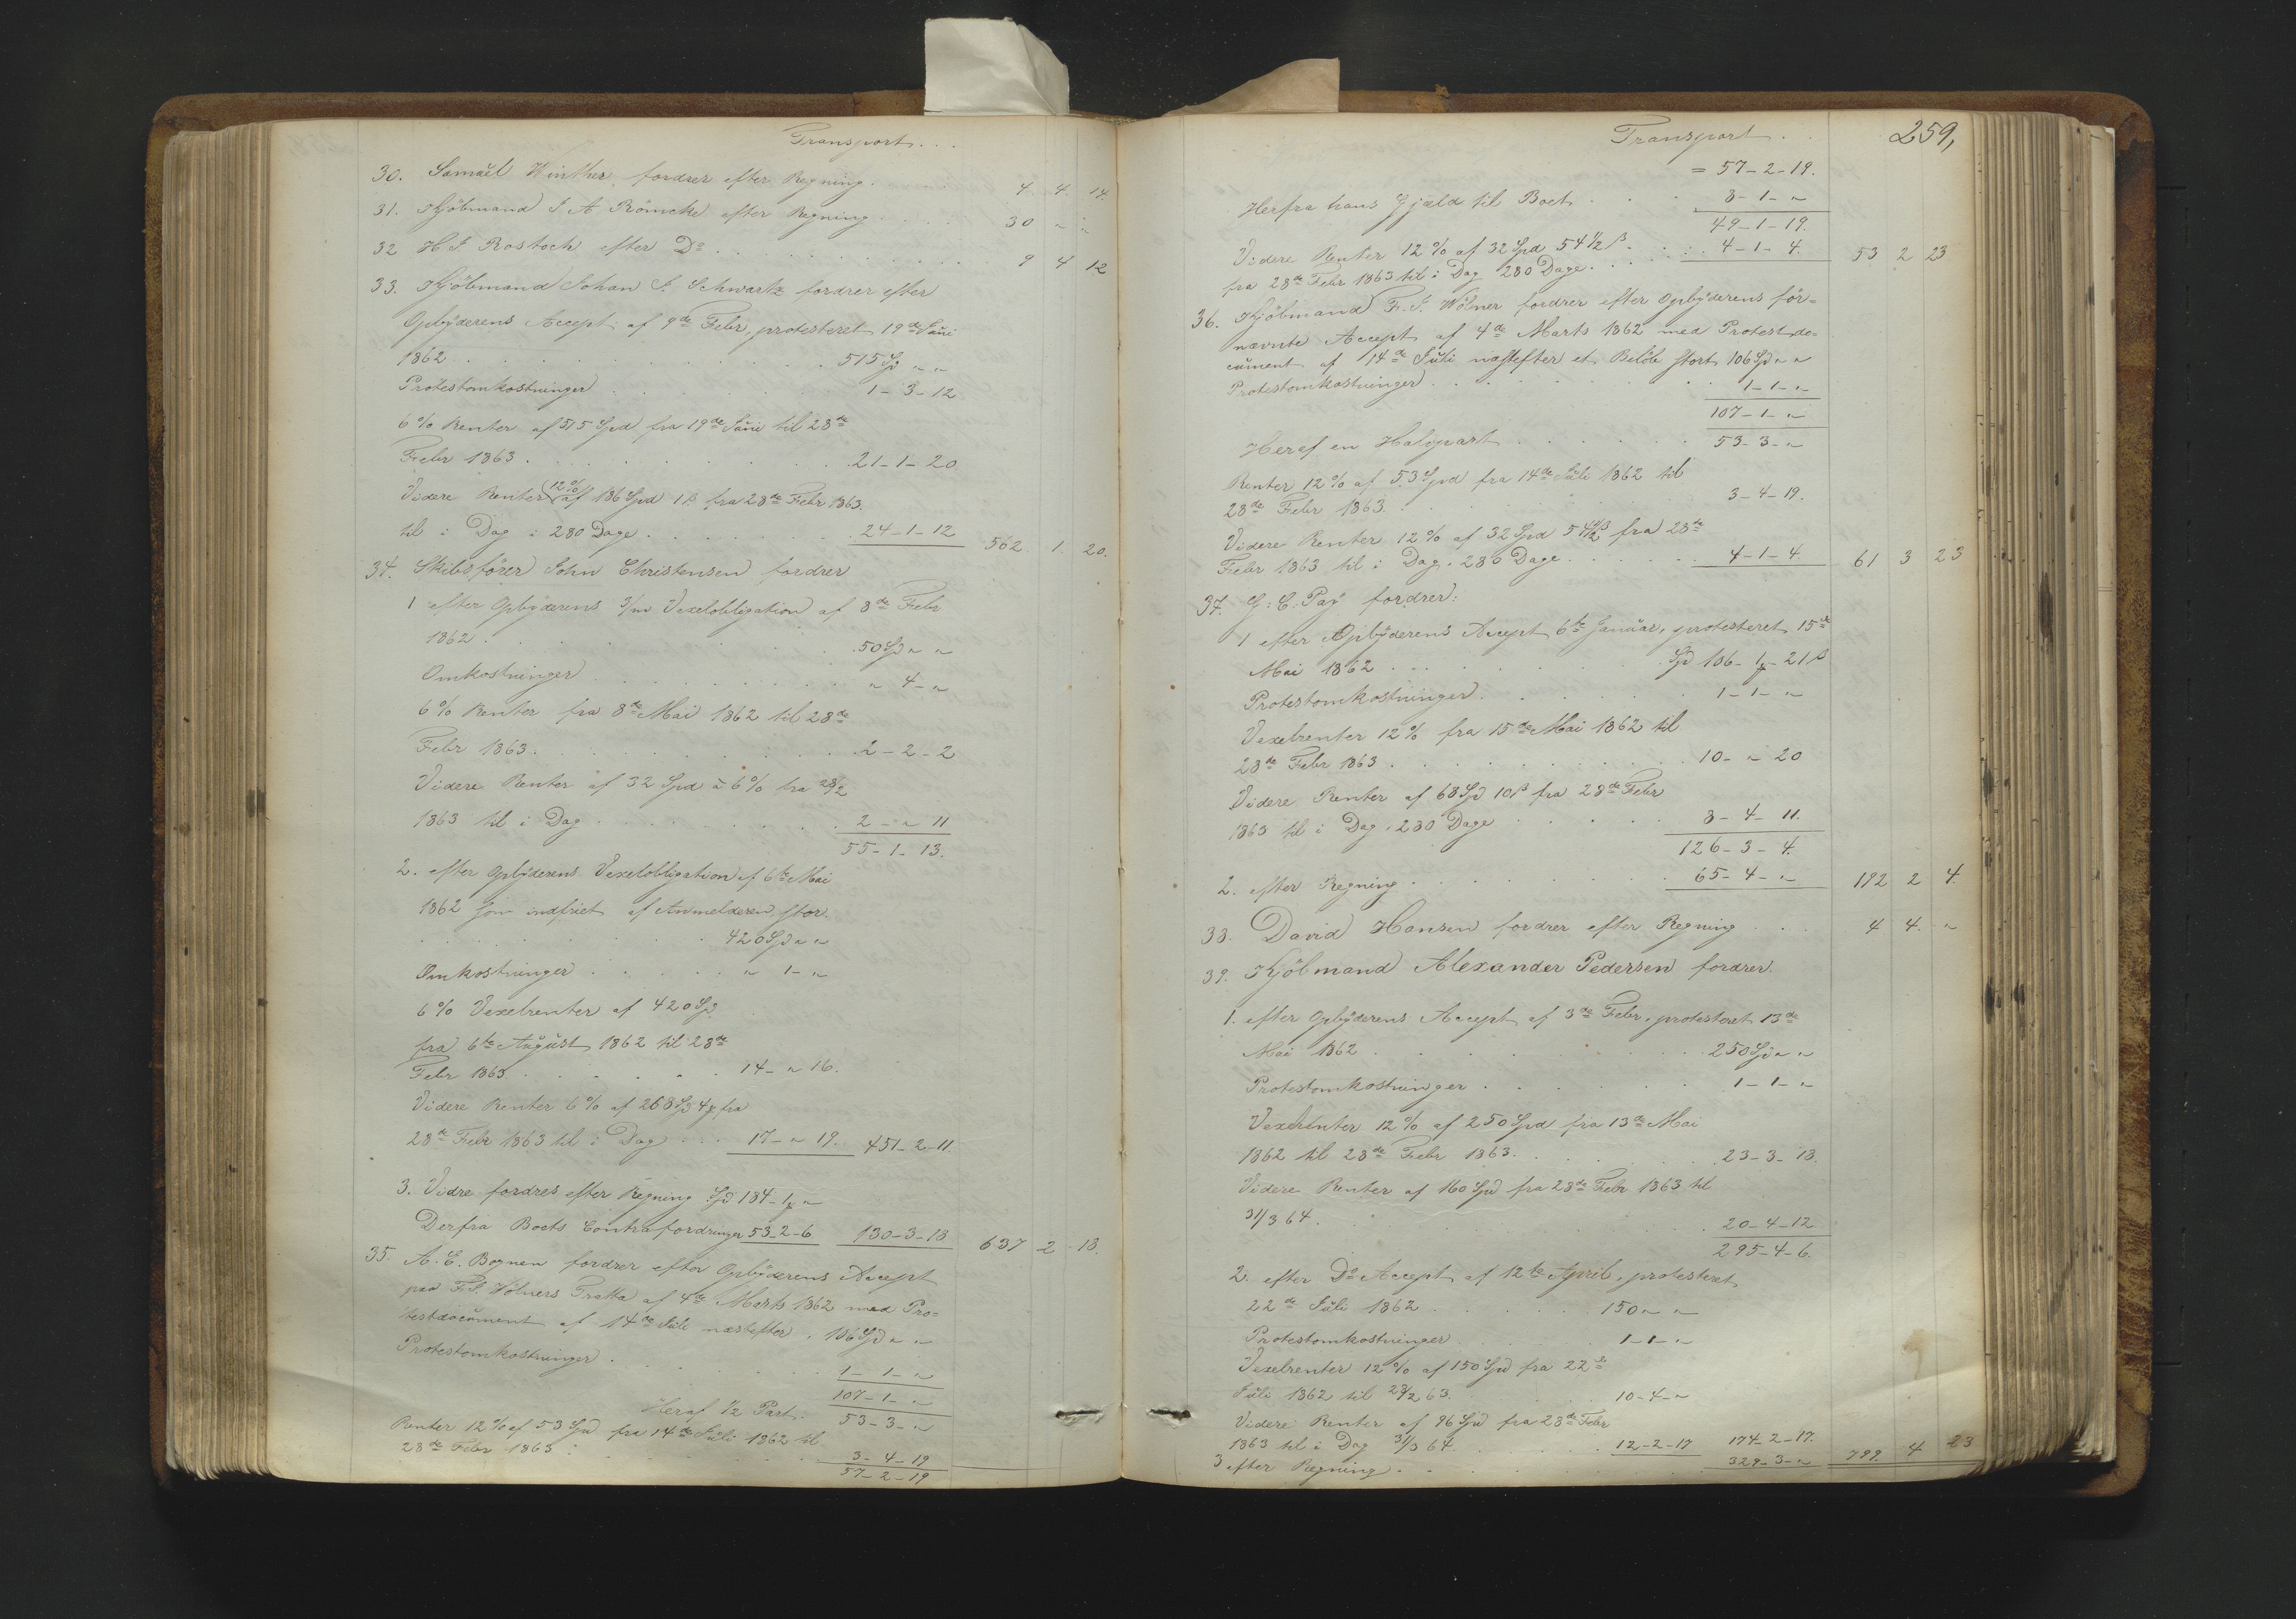 Transport . . .
30. Samuel Winther fordrer efter Regning . 4 4 14.
31. Kjöbmand J A Römcke efter Regning . . . 30 " "
32 H J. Rostoch efter Do . . . . 9 4 12
33. Kjöbmand Johan J. Schwartz fordrer efter
Opbyderens Accept af 9de Febr, protesteret 19de Juni
1862 . . . . 515 Spd " "
Protestomkostninger . . . 1 - 3 - 12
6 % Renter af 515 Spd fra 19de Juni til 28de
Febr 1863 . . . . 21 - 1 - 20
Videre Renter 12 % af 186 Spd 1 ß fra 28de Febr 1863.
til i Dag i 280 Dage . . . 24 - 1 - 12 562 1 20.
34. Skibsförer John Christensen fordrer
1 efter Opbyderens 3/m Vexelobligation af 8de Febr
1862 . . . . 50 Spd " "
Omkostninger . . . . " 4 - "
6 % Renter fra 8de Mai 1862 til 28de
Febr 1863. . . . 2 - 2 - 2
Videre Renter af 32 Spd à 6 % fra 28/2
1863 til i Dag . . . . 2 - " 11
55 - 1 - 13.
2. efter Opbyderens Vexelobligation af 6te Mai
1862 som indfriet af Anmelderen, stor.
. . . . 420 Spd " "
Omkostninger . . . . " 1 - "
6 % Vexelrenter af 420 Spd
fra 6te August 1862 til 28de
Febr 1863 . . . . 14 - " 16.
Videre Renter 6 % af 268 Spd 4 fra
28de Febr 1863 til i Dag . . . 17 - " 19. 451 - 2 - 11.
3. Vidre fordres efter Regning Spd 184 - 1 "
Derfra Boets Contrafordringer 53 - 2 - 6 130 - 3 - 18 637 2 18.
35. A. E. Bognen fordrer efter Opbyderens Accept
paa F. J. Wölners Tratta af 4de Marts 1862 med Pro-
testdocument af 14de Juli næstefter . 106 Spd " "
Protestomkostninger . . . . 1 - 1 - "
107 - 1 - "
Heraf 1/2 Part. 53 - 3 - "
Renter 12 % af 53 Spd fra 14de Juli 1862 til
28de Febr 1863 : . . . 3 - 4 - 19
57 - 2 - 19
259,
Transport . .
= 57 - 2 - 19.
Herfra hans Gjæld til Boet . . . 8 - 1 - "
49 - 1 - 19.
Videre Renter 12 % af 32 Spd 54 1/2 ß . . . . 4 - 1 - 4. 53 2 23
fra 28de Febr 1863 til i Dag 280 Dage . . . .
36. Kjöbmand F. J. Wölner fordrer efter Opbyderens for=
nævnte Accept af 4de Marts 1862 med Protestdo=
cument af 14de Juli næstefter et Belöb stort 106 Spd " "
Protestomkostninger . . . . 1 - 1 - "
107 - 1 - "
Heraf en Halvpart . . . . 53 - 3 - "
Renter 12 % af 53 Spd fra 14de Juli 1862 til
28de Febr 1863. . . . 3 - 4 - 19.
Videre Renter 12 % af 32 Spd 54 1/2 ß fra 28de
Febr 1863 til i Dag . 280 Dage . . . . 4 - 1 - 4. 61 3 23
37. G: C: Pay fordrer:
1 efter Opbyderens Accept 6te Januar, protesteret 15de
Mai 1862 . . . . Spd 106 - 1 - 21 ß
Protestomkostninger . . . . 1 - 1 - "
Vexelrenter 12 % fra 15de Mai 1862 til
28de Febr 1863 . . . . 10 - " 20
Videre Renter af 68 Spd 10 ß fra 28de Febr
1863 til i Dag . 280 Dage . . . . 8 - 4 - 11.
126 - 3 - 4.
2. efter Regning . . . . 65 - 4 - " 192 2 4.
38. David Hansen fordrer efter Regning . . . 4 4. "
39. Kjöbmand Alexander Pedersen fordrer.
1. efter Opbyderens Accept af 3de Febr, protesteret 13de
Mai 1862 . . . . 250 Spd " "
Protestomkostninger . . . . 1 - 1 - "
Vexelrenter 12 % af 250 Spd fra 13de Mai
1862 til 28de Febr 1863. . . . 23 - 3 - 18.
Videre Renter af 160 Spd fra 28de Febr 1863 til
31/3 64. . . . 20 - 4 - 12
295 - 4 - 6.
2. efter Do Accept af 12te April, protesteret
22de Juli 1862 . . . . 150 " "
Protestomkostninger . . . 1 - 1 - "
Vexelrenter 12 % af 150 Spd fra 22de
Juli 1862 til 28/2 63. . . 10 - 4 - "
Videre Renter af 96 Spd fra 28de Febr
1863 til i Dag 31/3 64. . . . 12 - 2 - 17 174 - 2 - 17.
3 efter Regning . . . . 329 - 3 - " 799. 4 23